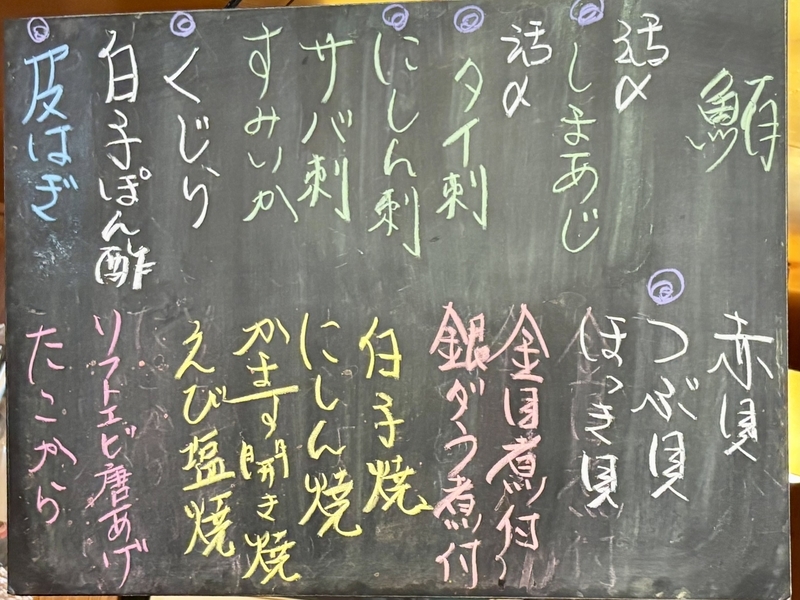 鮪
活〆
しまあじ
活〆
タイ刺
にしん刺
サバ刺
すみいか
くじら
白子ぽん酢
皮はぎ
赤貝
つぶ貝
ほっき貝
金目煮付
銀ダラ煮付
白子焼
にしん焼
かます開き焼
えび塩焼
ソフトエビ唐あげ
たこから